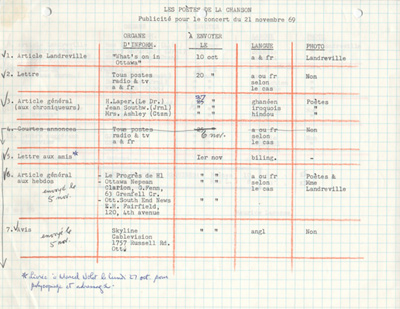 LES POÈTES DE LA CHANSON
Publicité pour le concert du 21 novembre 69
ORGANE D'INFORM. À ENVOYER LE LANGUE PHOTO
1. Article Landreville "What's on in Ottawa" 10 oct a & fr Landreville
2. Lettre Tous postes radio & tv a & fr 20 " a ou fr selon le cas Non
3. Article général (aux chroniqueurs) H.Laper.(Le Dr.) 27 " ghanéen Poètes
Jean Southw.(Jrnl) " " iroquois /
Mrs. Ashley (Ctzn) " " hindou
4. Courtes annonces Tous postes radio & tv a & fr 6 nov. a ou fr selon le cas Non
5. Lettre aux amis* 1er nov biling. -
6. Article général aux hebdos - Le Progrès de Hl " " a ou fr Poètes &
- Ottawa Nepean " " selon Mme
Clarion, S.Penn, le cas Landreville
63 Grenfell Cr.
envoyé le 5 nov. - Ott.South End News
E.M. Fairfield,
120, 4th avenue
7. Avis Skyline " " angl Non
envoyé le 5 nov. Cablevision
1757 Russell Rd.
Ott.
* Livrée à le lundi 27 oct. pour
polycopiage et adressage.